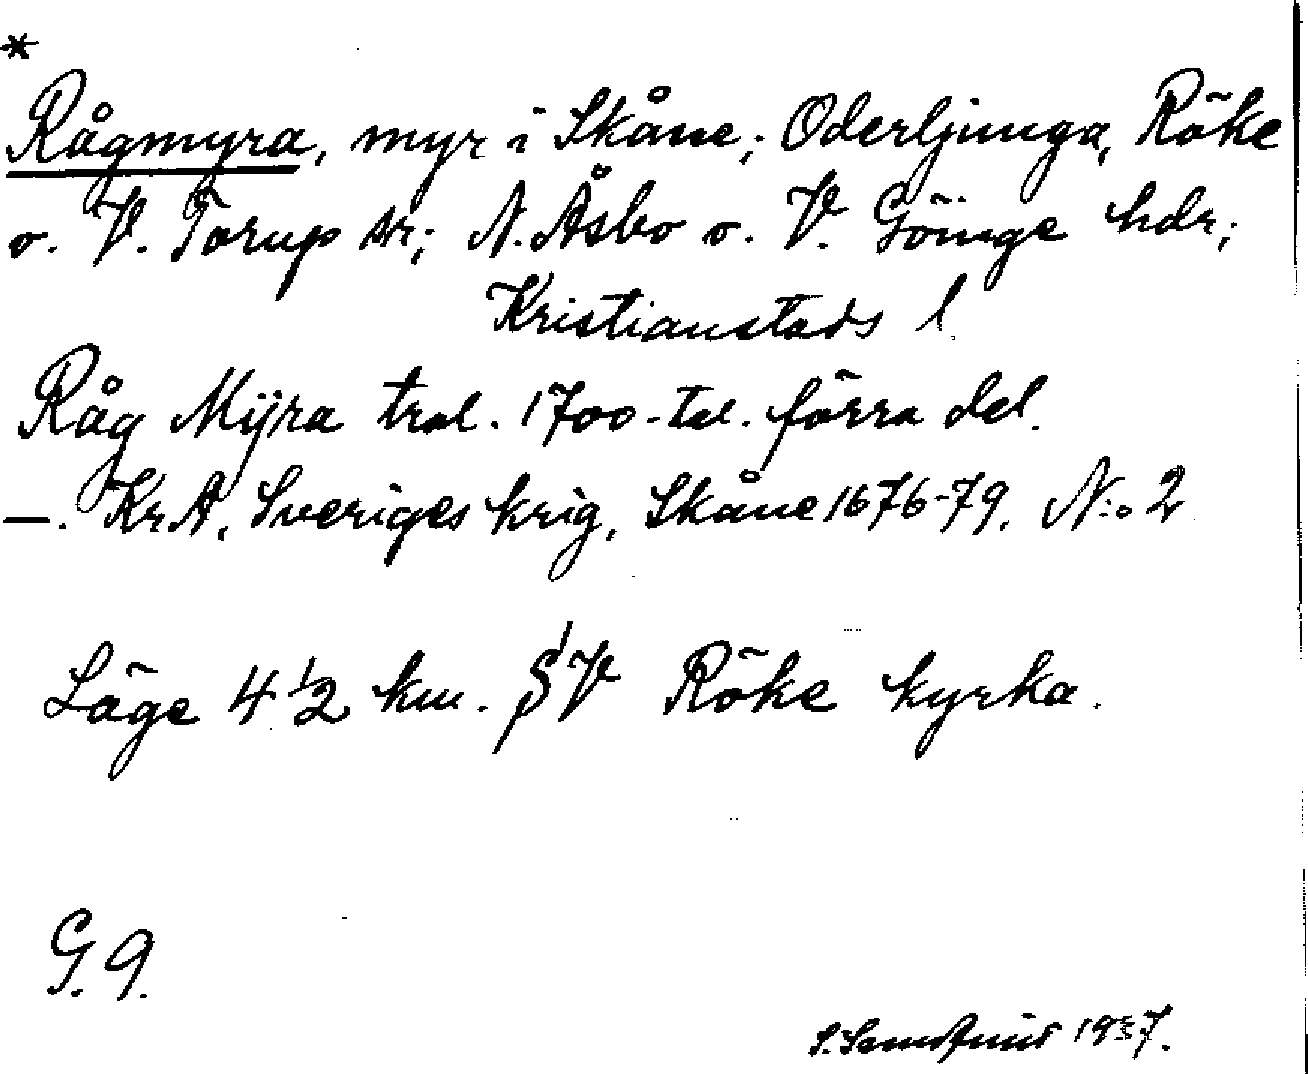 *
Rågmyra, myr i Skåne; Oderljunga, Röke
o. V. Torup sr; N. Åsbo o. V. Göinge hdr;
Kristianstads l.
Råg Mÿra trol. 1700-tal. förra del.
—. KrA, Sveriges krig, Skåne 1676-79. N:o 2
Läge 4 1/2 km. V Röke kyrka.
G. 9.
S. 1937.